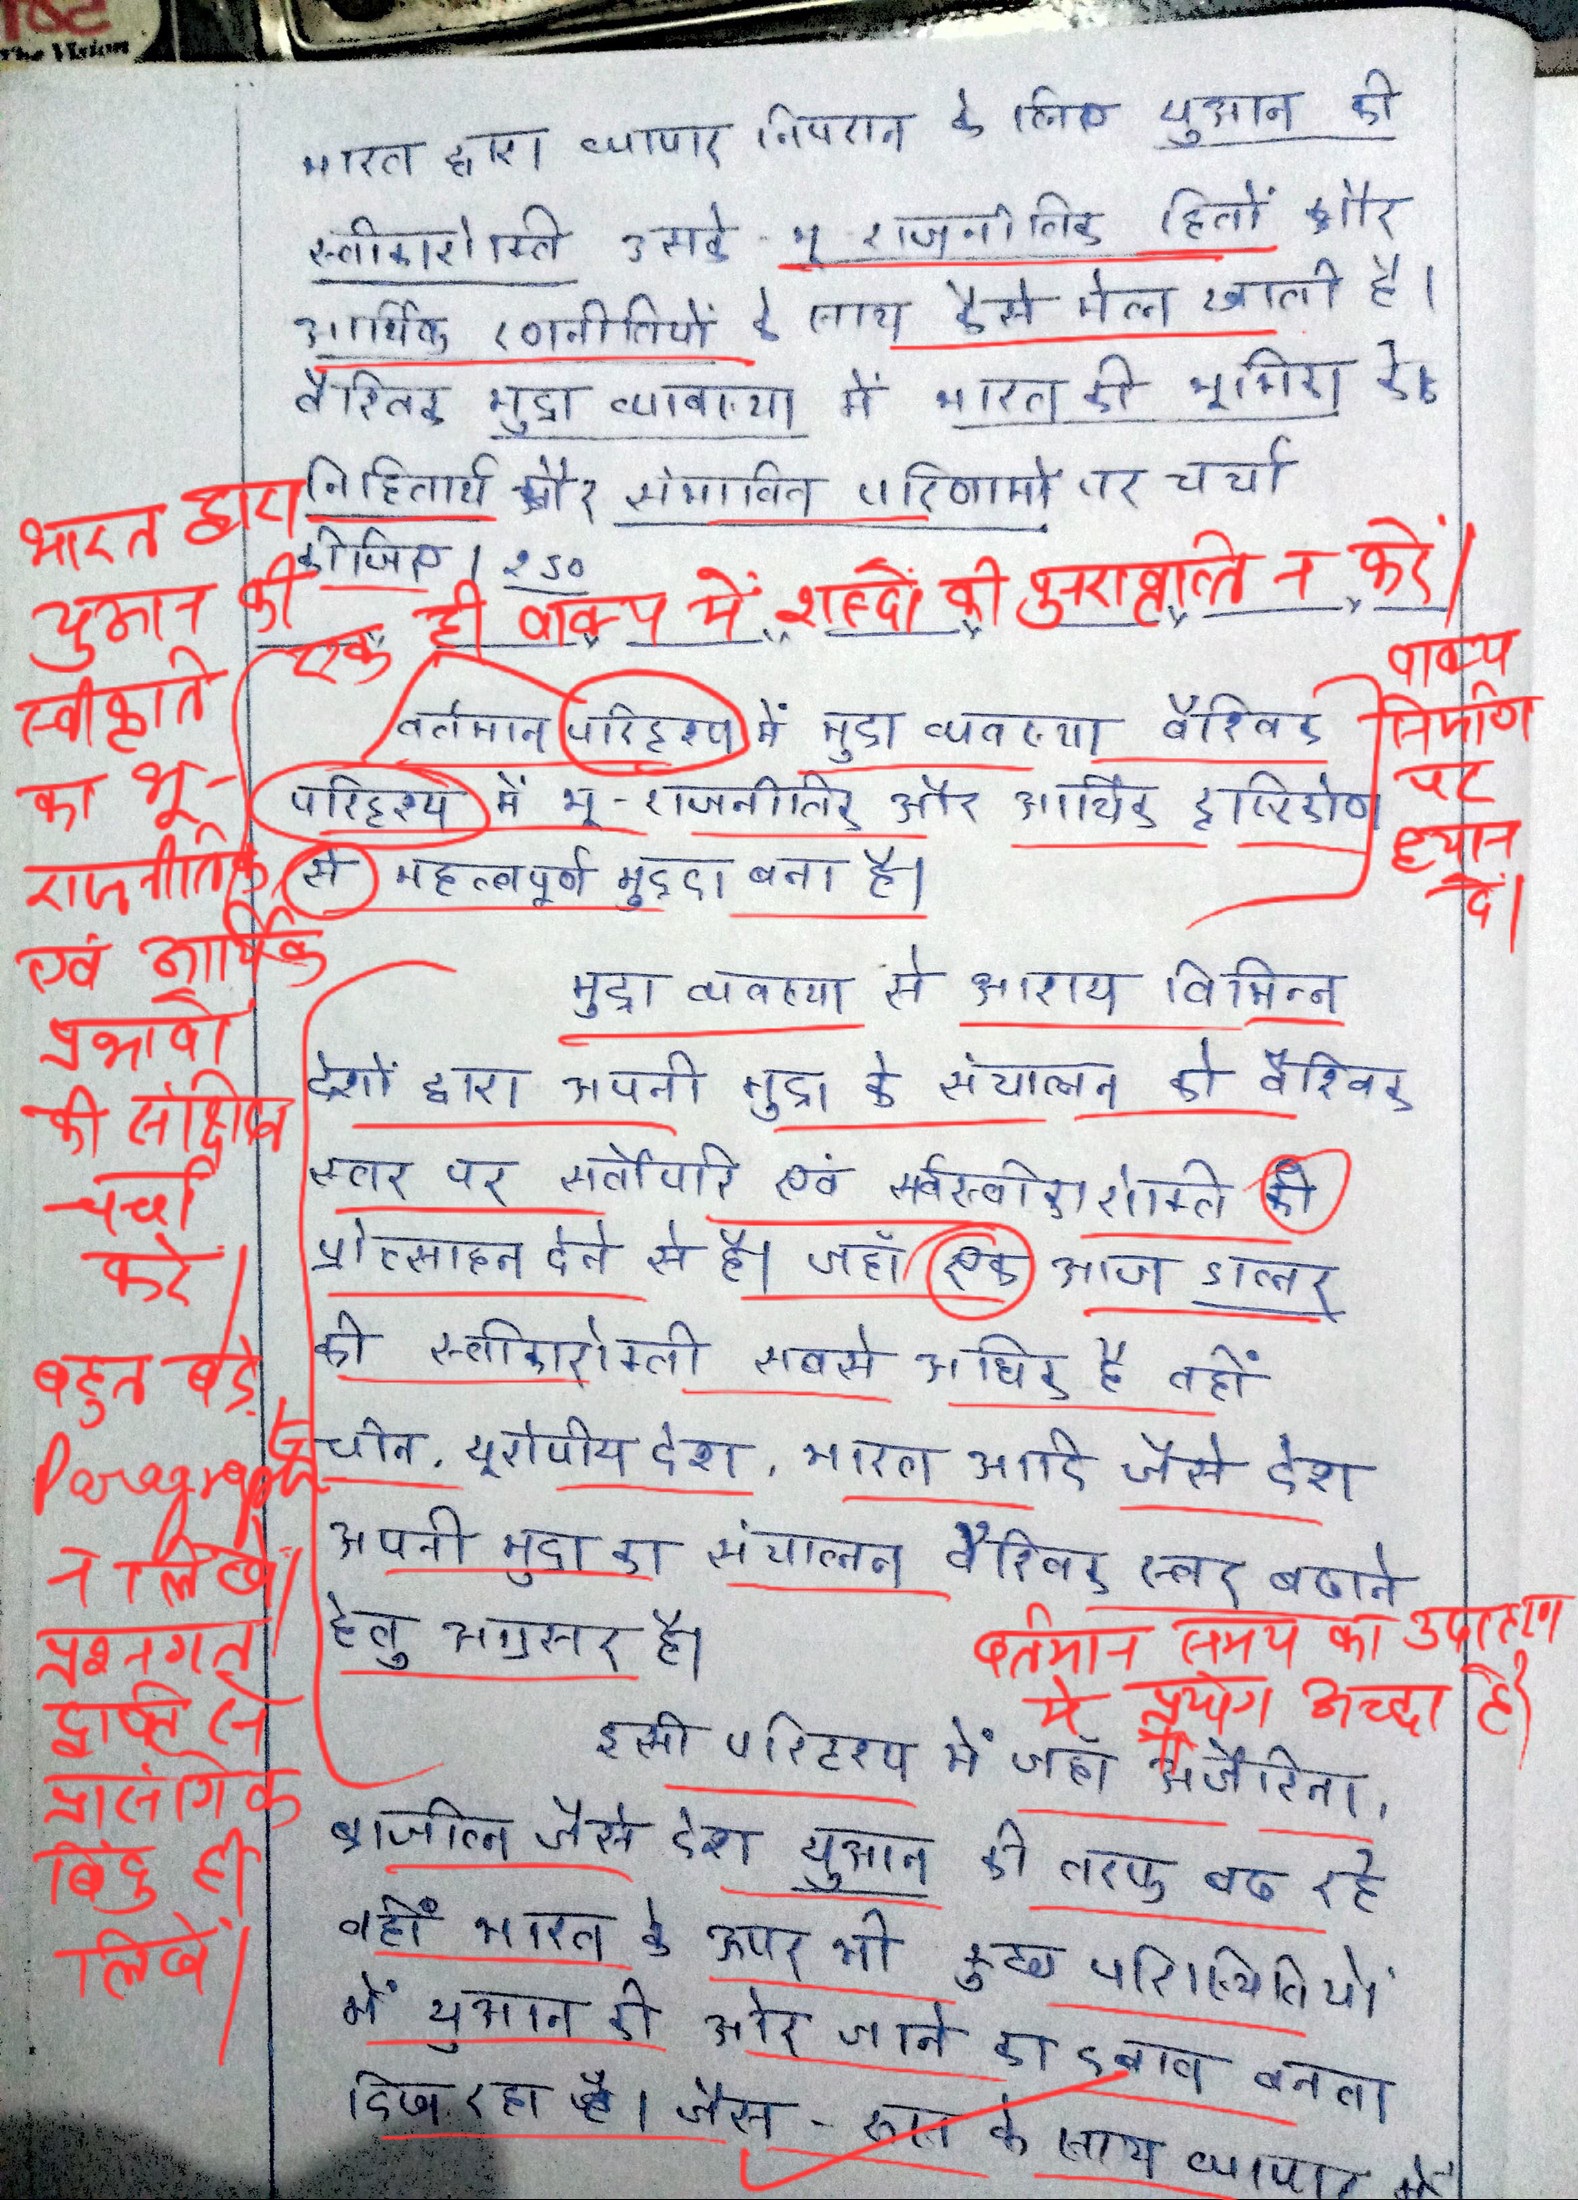 The Vision
भारत द्वारा व्यापार निपटान के लिए युआन की
स्वीकारोक्ति उसके भू राजनीतिक हितों और
आर्थिक रणनीतियों के साथ कैसे मेल खाती है।
वैश्विक मुद्रा व्यवस्था में भारत की भूमिका के
निहितार्थ और संभावित परिणामों पर चर्चा
कीजिए। २५०
एक ही वाक्य में शब्दों की पुनरावृत्ति न करें।
वर्तमान परिदृश्य में मुद्रा व्यवस्था वैश्विक
परिदृश्य में भू-राजनीतिक और आर्थिक दृष्टिकोण
से महत्वपूर्ण मुद्दा बना है।
वाक्य
निर्माण
पर
ध्यान
दें।
मुद्रा व्यवस्था से आशय विभिन्न
देशों द्वारा अपनी मुद्रा के संचालन को वैश्विक
स्तर पर सर्वोपरि एवं सर्वस्वीकारोक्ति की
प्रोत्साहन देने से है। जहाँ एक आज डालर
की स्वीकारोक्ती सबसे अधिक है वहीं
चीन, यूरोपीय देश, भारत आदि जैसे देश
अपनी मुद्रा का संचालन वैश्विक स्तर बढाने
हेतु अग्रसर है।
वर्तमान समय का उदाहरण
मे प्रयोग अच्छा है।
इसी परिदृश्य में जहाँ अर्जेंटिना,
ब्राजील जैसे देश युआन की तरफ बढ रहे
वहीं भारत के ऊपर भी कुछ परिस्थितियों
में युआन की ओर जाने का दबाव बनता
दिख रहा है। जैसे - रूस के साथ व्यापार में
भारत द्वारा
युआन की
स्वीकृति
का भू-
राजनीतिक
एवं आर्थिक
प्रभावों
की संक्षिप्त
चर्चा
करें।
बहुत बड़े
Paragraph
न लिखें।
प्रश्नगत
दृष्टि से
प्रासंगिक
बिंदु ही
लिखें।